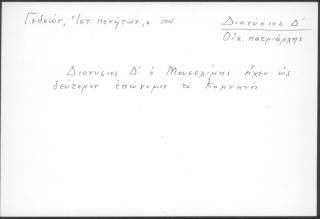 Γεδεών, Ἱστ. πενήτων, σ.
Διονύσιος Δ΄
Οἰκ. πατριάρχης
Διονύσιος Δ΄ ὁ Μουσελίμης εἶχεν ὡς
δεύτερον ἐπώνυμον τὸ Κομνηνός.